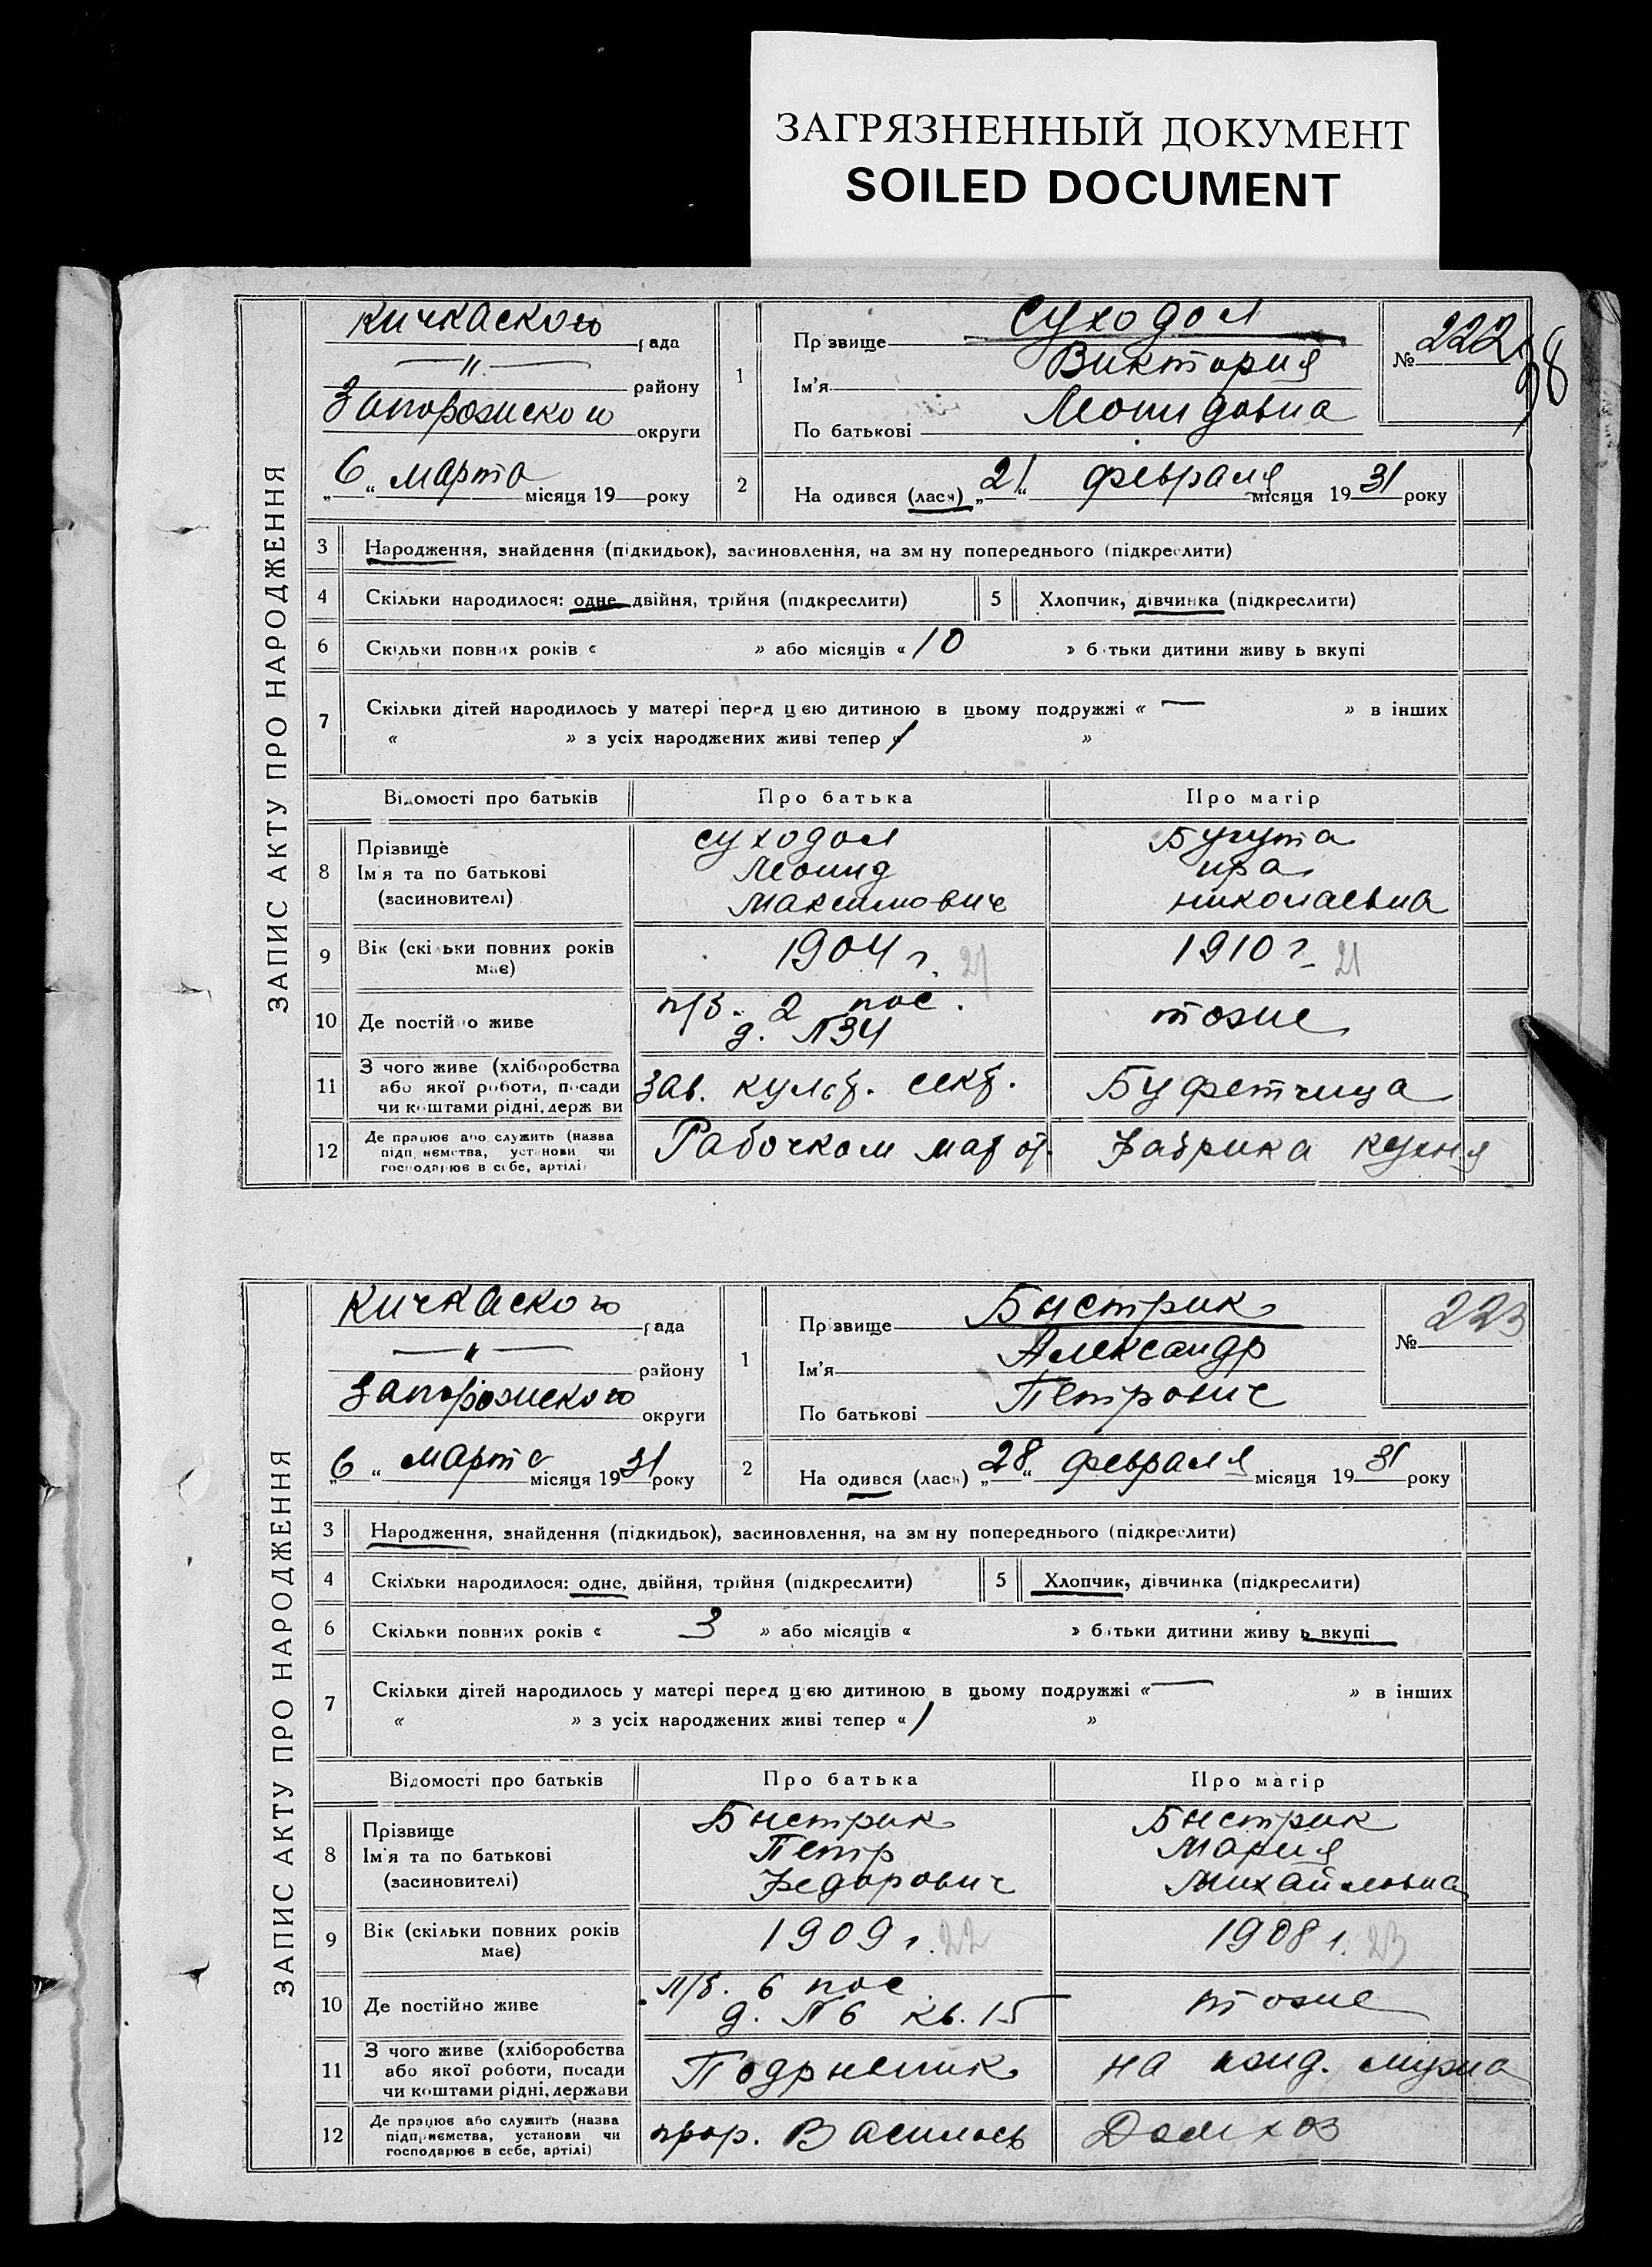 ЗАГРЯЗНЕННЫЙ ДОКУМЕНТ
SOILED DOCUMENT
ЗАПИС АКТУ ПРО НАРОДЖЕННЯ
Кичкаского рада
— " — району
Запорожского округи
„6“ марта місяця 19 року
1
Прізвище Суходол
Ім'я Виктория
По батькові Леонидовна
№ 222
98
2
На одився (лася) „21“ февраля місяця 1931 року
3 Народження, знайдення (підкидьок), засиновлення, на зм ну попереднього (підкреслити)
4 Скільки народилося: одне двійня, трійня (підкреслити)
5 Хлопчик, дівчинка (підкреслити)
6 Скільки повних років « » або місяців « 10 » б тьки дитини живу ь вкупі
7 Скільки дітей народилось у матері перед цією дитиною в цьому подружжі « — » в інших
« » з усіх народжених живі тепер « 1 »
Відомості про батьків Про батька Про матір
8 Прізвище Ім'я та по батькові (засиновителі)
Суходол Леонид Максимович
Ира Николаевна
9 Вік (скільки повних років має) 1904 г. 1910 г. 21
10 Де постійно живе п/б. 2 пос. д. №34 тоже
11 З чого живе (хліборобства або якої роботи, посади чи коштами рідні, держ ви
Зав. культ. сект. Буфетчица
12 Де працює або служить (назва підп иємства, установи чи господарює в себе, артілі)
Рабочком Фабрика кухня
ЗАПИС АКТУ ПРО НАРОДЖЕННЯ
Кичкаского рада
— " — району
Запорожского округи
„6“ марта місяця 1931 року
1
Прізвище Быстрик
Ім'я Александр
По батькові Петрович
№ 223
2
На одився (лася) „28“ февраля місяця 1931 року
3 Народження, знайдення (підкидьок), засиновлення, на зм ну попереднього (підкреслити)
4 Скільки народилося: одне, двійня, трійня (підкреслити)
5 Хлопчик, дівчинка (підкреслити)
6 Скільки повних років « 3 » або місяців « » батьки дитини живу ь вкупі
7 Скільки дітей народилось у матері перед цією дитиною в цьому подружжі « — » в інших
« » з усіх народжених живі тепер « 1 »
Відомості про батьків Про батька Про матір
8 Прізвище Ім'я та по батькові (засиновителі)
Быстрик Петр Федорович
Быстрик Мария Михайловна
9 Вік (скільки повних років має) 1909 г. 22 1908 г. 23
10 Де постійно живе п/б. 6 пос. д. №6 кв. 15 тоже
11 З чого живе (хліборобства або якої роботи, посади чи коштами рідні, держави
Подрывник на ижд. мужа
12 Де працює або служить (назва підприємства, установи чи господарює в себе, артілі)
прор. Домхоз